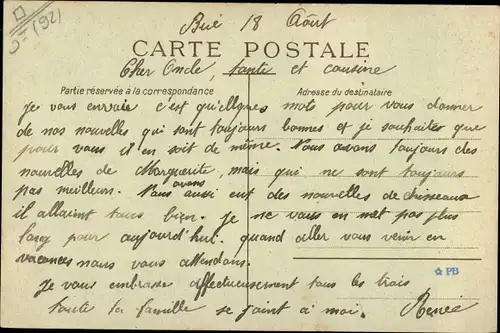 Bué 18 Août
CARTE POSTALE
Cher Oncle, tante et cousine
Partie réservée à la correspondance
Adresse du destinataire
Je vous envoie c'est quellques mots pour vous donner
de nos nouvelles qui sont toujours bonnes et je souhaites que
pour vous il en soit de même. Nous avons toujours des
nouvelles de Marguerite, mais qui ne sont toujours
pas meilleurs. Nous avons aussi eut des nouvelles de
il allaint tous bien. Je ne vous en met pas plus
long pour aujourd'hui. quand aller vous venir en
vacances nous vous attendons.
Je vous embrasse affectueusement tous les trois
toute la famille se joint à moi. Renée
PB
(92)